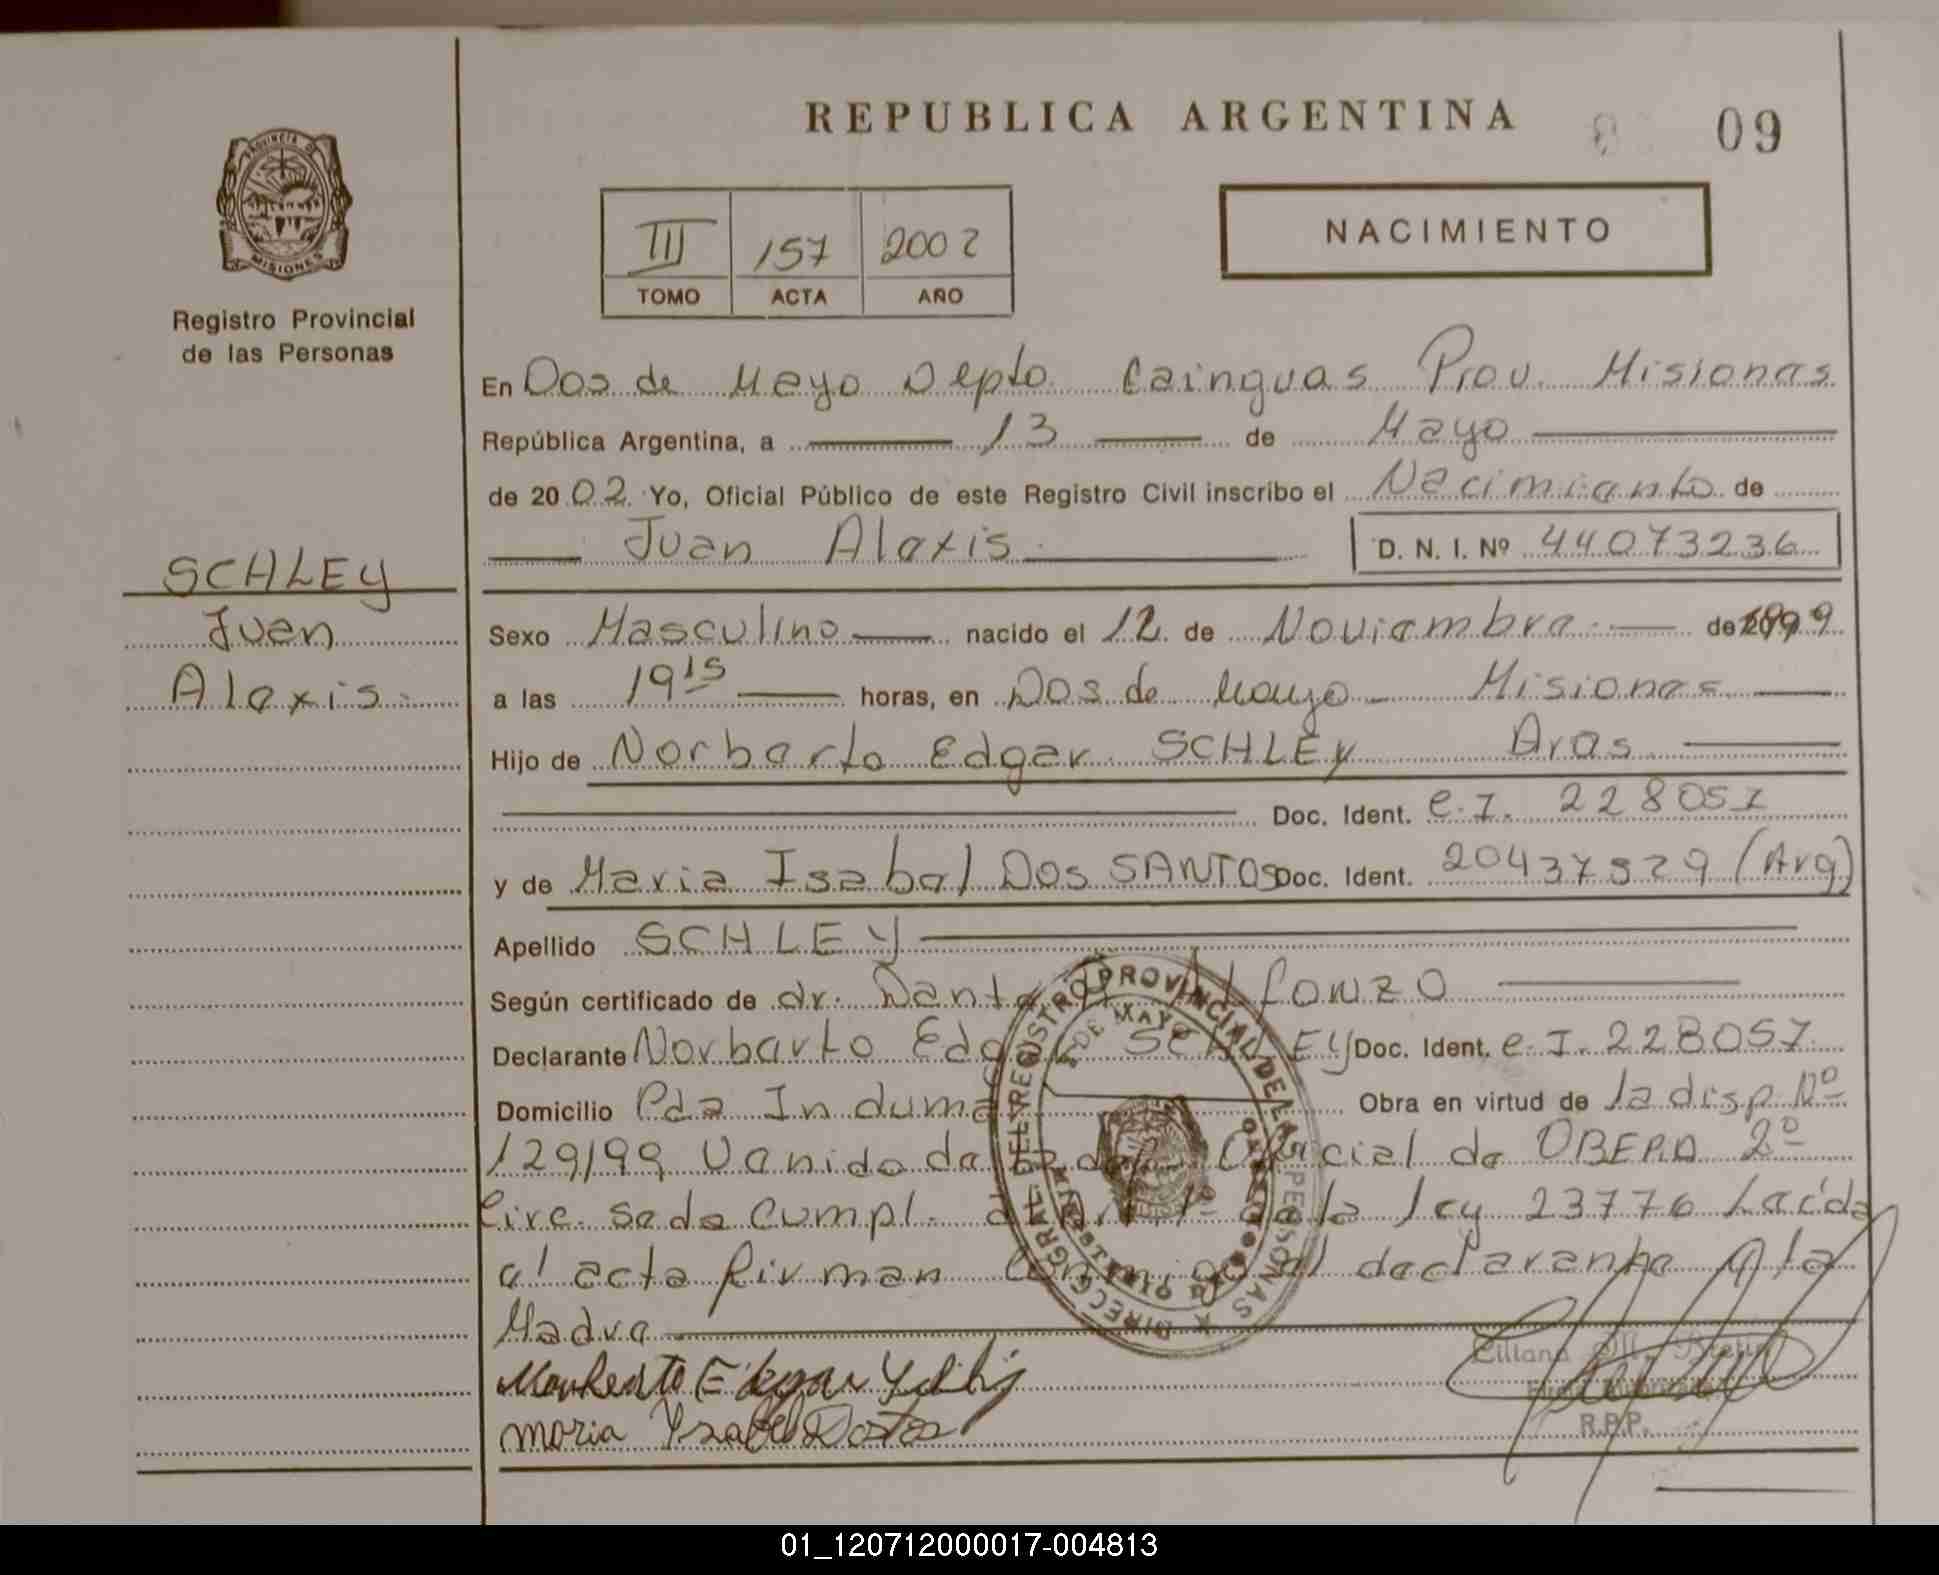 REPUBLICA ARGENTINA
09
PROVINCIA DE
MISIONES
Registro Provincial
de las Personas
III 157 2002
TOMO ACTA AÑO
NACIMIENTO
En Dos de Mayo Depto Cainguas Prov. Misiones
República Argentina, a 13 de Mayo
de 2002 Yo, Oficial Público de este Registro Civil inscribo el Nacimiento de
Juan Alexis
D. N. I. Nº 44073236
SCHLEY
Juan
Alexis
Sexo Masculino nacido el 12 de Noviembre de 1999
a las 19 15 horas, en Dos de Mayo Misiones
Hijo de Norberto Edgar SCHLEY
Doc. Ident. e.I. 228057
y de Maria Isabel DOS SANTOS Doc. Ident. 20437529 (Arg)
Apellido SCHLEY
Según certificado de dr. Alfonzo
Declarante Norberto Edgar SCHLEY Doc. Ident. e.I. 228057
Domicilio Pda Indumar Obra en virtud de la disp. Nº
129/99 Venido de la del. Oficial de OBERA 2º
Circ. sede Cumpl. de la ley 23776 Leída
el acta firman conmigo el declarante y la
Madre
DIREC. GRAL. DEL REGISTRO PROVINCIAL DE LAS PERSONAS
2 DE MAYO
MISIONES
Maria Ysabel
Liliana M.
R.P.P.
01_120712000017-004813